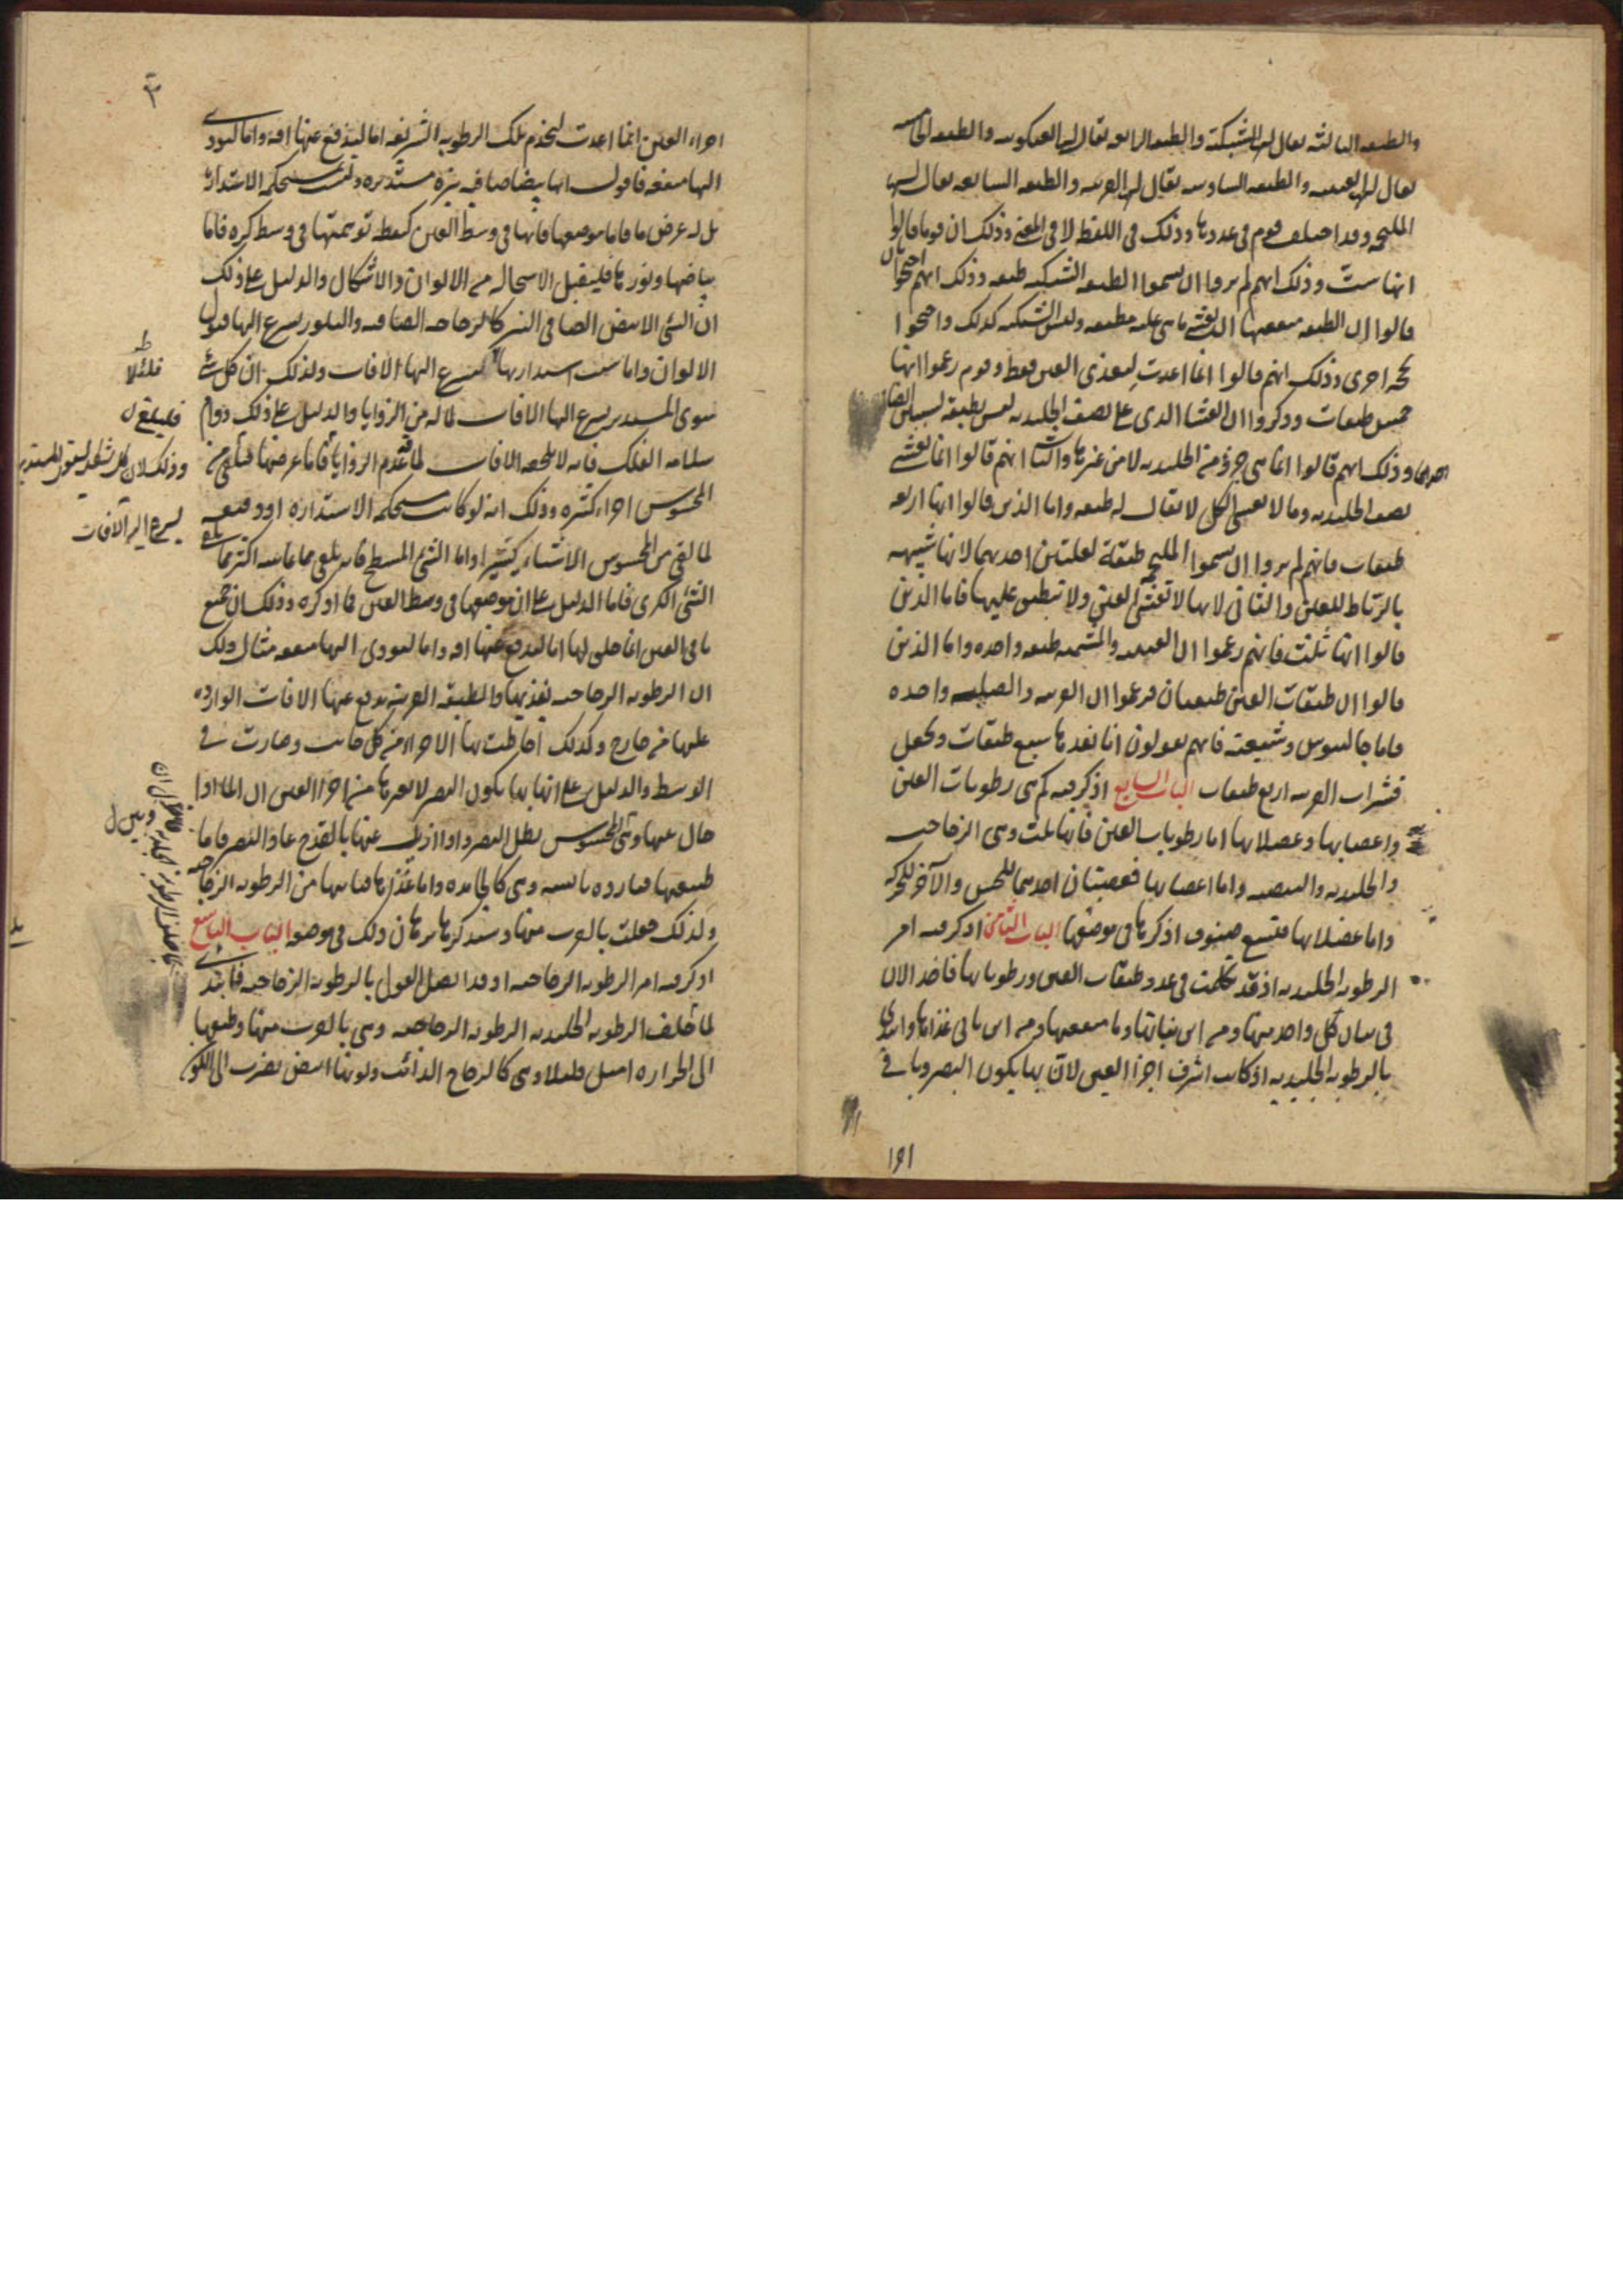 والطبقه الثالثه يقال لها الشبكية والطبقه الرابعه يقال لها العنكبوتيه والطبقه الخامسه
يقال لها العنبيه والطبقه السادسه يقال لها القرنيه والطبقه السابعه يقال لها
الملتحمه وقد اختلف قوم في عددها وذلك في اللفظ لا في المعنى وذلك ان قوما قالوا
انها ست وذلك انهم لم يروا ان يسموا الطبقه الشبكيه طبقه وذلك انهم احتجوا بان
قالوا ان الطبقه منفعتها ان تغشى ما هي عليه مطبقه وليس الشبكيه كذلك واحتجوا
بحجه اخرى وذلك انهم قالوا انما اعدت لتغذى العين فقط وقوم زعموا انها
خمس طبقات وذكروا ان الغشا الذي على نصف الجليديه ليس بطبقة لسببين ايضا
احدهما وذلك انهم قالوا انما هي جزؤ من الجليديه لا من غيرها والثاني انهم قالوا انما تغشى
نصف الجليديه وما لا يغشى الكل لا يقال له طبقه واما الذين قالوا انها اربعه
طبقات فانهم لم يروا ان يسموا الملتحمة طبقة لعلتين احديهما لانها شبيهه
بالرباط للعين والثاني لانها لا تغشى العين ولا تنطبق عليها فاما الذين
قالوا انها ثلثة فانهم زعموا ان العنبيه والمشيميه طبقه واحده واما الذين
قالوا ان طبقات العين طبقتان فزعموا ان القرنيه والصلبه واحده
فاما جالينوس وشيعته فانهم يقولون انا نعدها سبع طبقات ونجعل
قشرات القرنيه اربع طبقات الباب السابع اذكر فيه كم هي رطوبات العين
واعصابها وعضلاتها اما رطوبات العين فانها ثلث وهي الزجاجيه
والجليديه والبيضيه واما اعصابها فعصبتان احديهما للحس والآخر للحركه
واما عضلاتها فتسع صنوف اذكرها في موضعها الباب الثامن اذكر فيه امر
الرطوبه الجليديه اذ قد تكلمت في عدد طبقات العين ورطوباتها فاخذ الان
في بيان كل واحد منها ومن اين نباتها وما منفعتها ومن اين ياتي غذاؤها وابتدى
بالرطوبه الجليديه اذ كانت اشرف اجزا العين لان بها يكون البصر وباقي
١٩١
٣
اجزاء العين انما اعدت لتخدم تلك الرطوبه الشريفه اما ليدفع عنها افه واما ليودى
اليها منفعه فاقول انها بيضا صافيه نيره مستديره وليست مستحكمه الاستداره
بل له عرض ما فاما موضعها فانها في وسط العين كنقطه توهمتها في وسط كره فاما
بياضها ونورها فليقبل الاستحاله من الالوان والاشكال والدليل على ذلك
ان الشي الابيض الصافي النير كالزجاجه الصافيه والبلور يسرع اليها قبول
الالوان واما سبب استدارتها ليسرع اليها الافات ولذلك ان كل شي
سوى المستدير يسرع اليها الافات لما له من الزوايا والدليل على ذلك دوام
سلامه الفلك فانه لا تلحقه الافات لما عدم الزوايا فاما عرضها فتلقى من
المحسوس اجزاء كثيره وذلك انه لو كانت مستحكمه الاستداره او دقيقه
لما لقى من المحسوس الاشياء كثيرا واما الشي المسطح فانه يلقى مما يماسه اكثر مما يلقى
الشي الكرى فاما الدليل على ان موضعها في وسط العين فما اذكره وذلك ان جميع
ما في العين انما خلق لها اما ليدفع عنها افه واما ليودى اليها منفعه مثال ذلك
ان الرطوبه الزجاجيه تغذيها والطبقه القرنيه يدفع عنها الافات الوارده
عليها من خارج وكذلك احاطت بها الاجزاء من كل جانب وصارت في
الوسط والدليل على انها بها يكون البصر لا بغيرها من اجزا العين ان الما اذا
حال بينها وبين المحسوس بطل البصر واذا ازيل عنها بالقدح عاد البصر فاما
طبيعتها فبارده يابسه وهي كالجامده واما غذاؤها فياتيها من الرطوبه الزجاجيه
ولذلك جعلت بالقرب منها وسنذكرها برهان ذلك في موضعه الباب التاسع
اذكر فيه امر الرطوبه الزجاجيه اذ قد اتصل القول بالرطوبة الزجاجيه فابتدى
لما خلف الرطوبه الجليديه الرطوبه الزجاجيه وهي بالقرب منها وطبعها
الى الحراره اميل قليلا وهي كالزجاج الذائب ولونها ابيض يضرب الى
فلئلا
فليبلغ
وذلك لان كل شكل سوى المستدير
يسرع اليه الافات
وبين